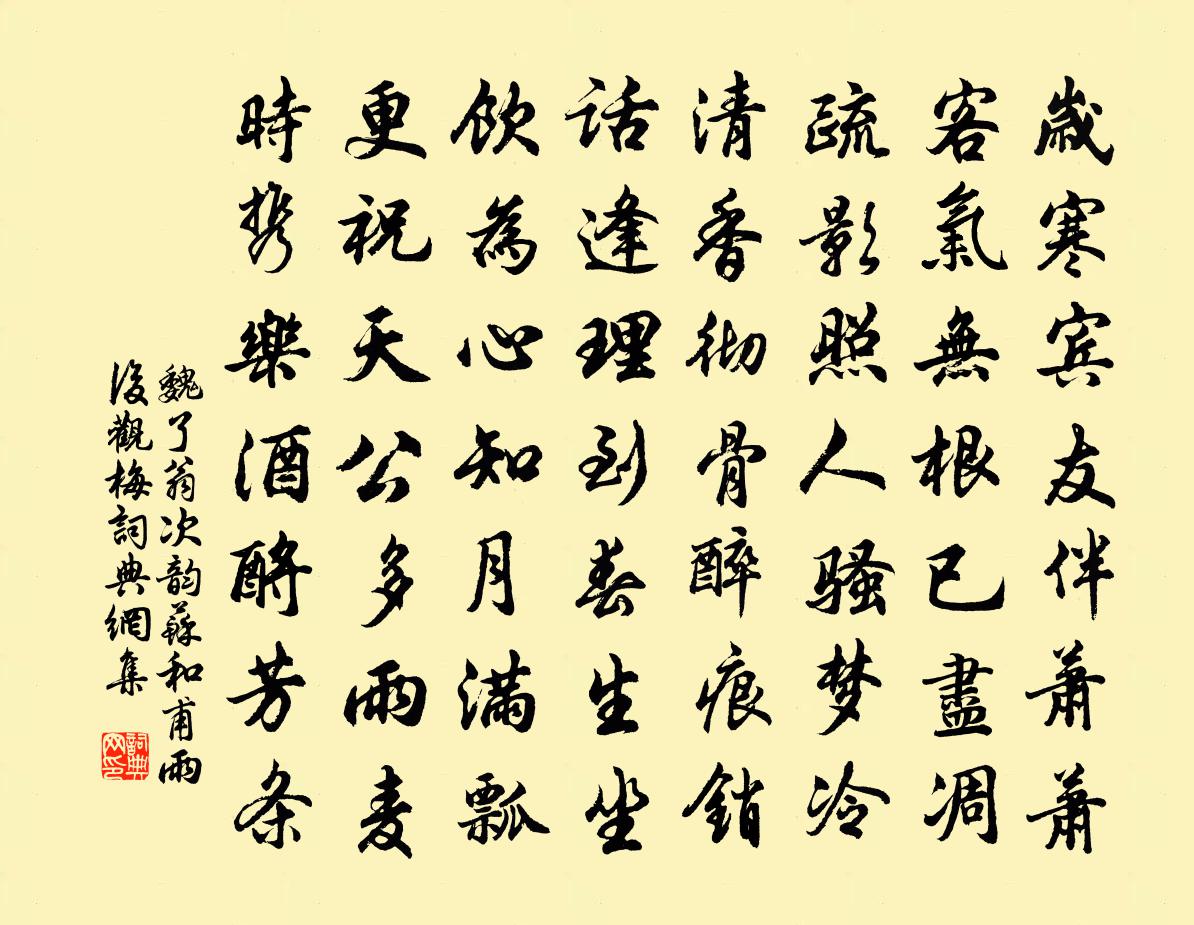 歲寒賓友伴蕭蕭
客氣無根已盡凋
疏影照人骚梦冷
清香彻骨醉痕銷
話逢理到春生坐
飲為心知月满瓢
更祝天公多雨麦
時携樂酒酹芳条
魏了翁次韵蘇和甫雨
後觀梅詞典網集
詞典
网印